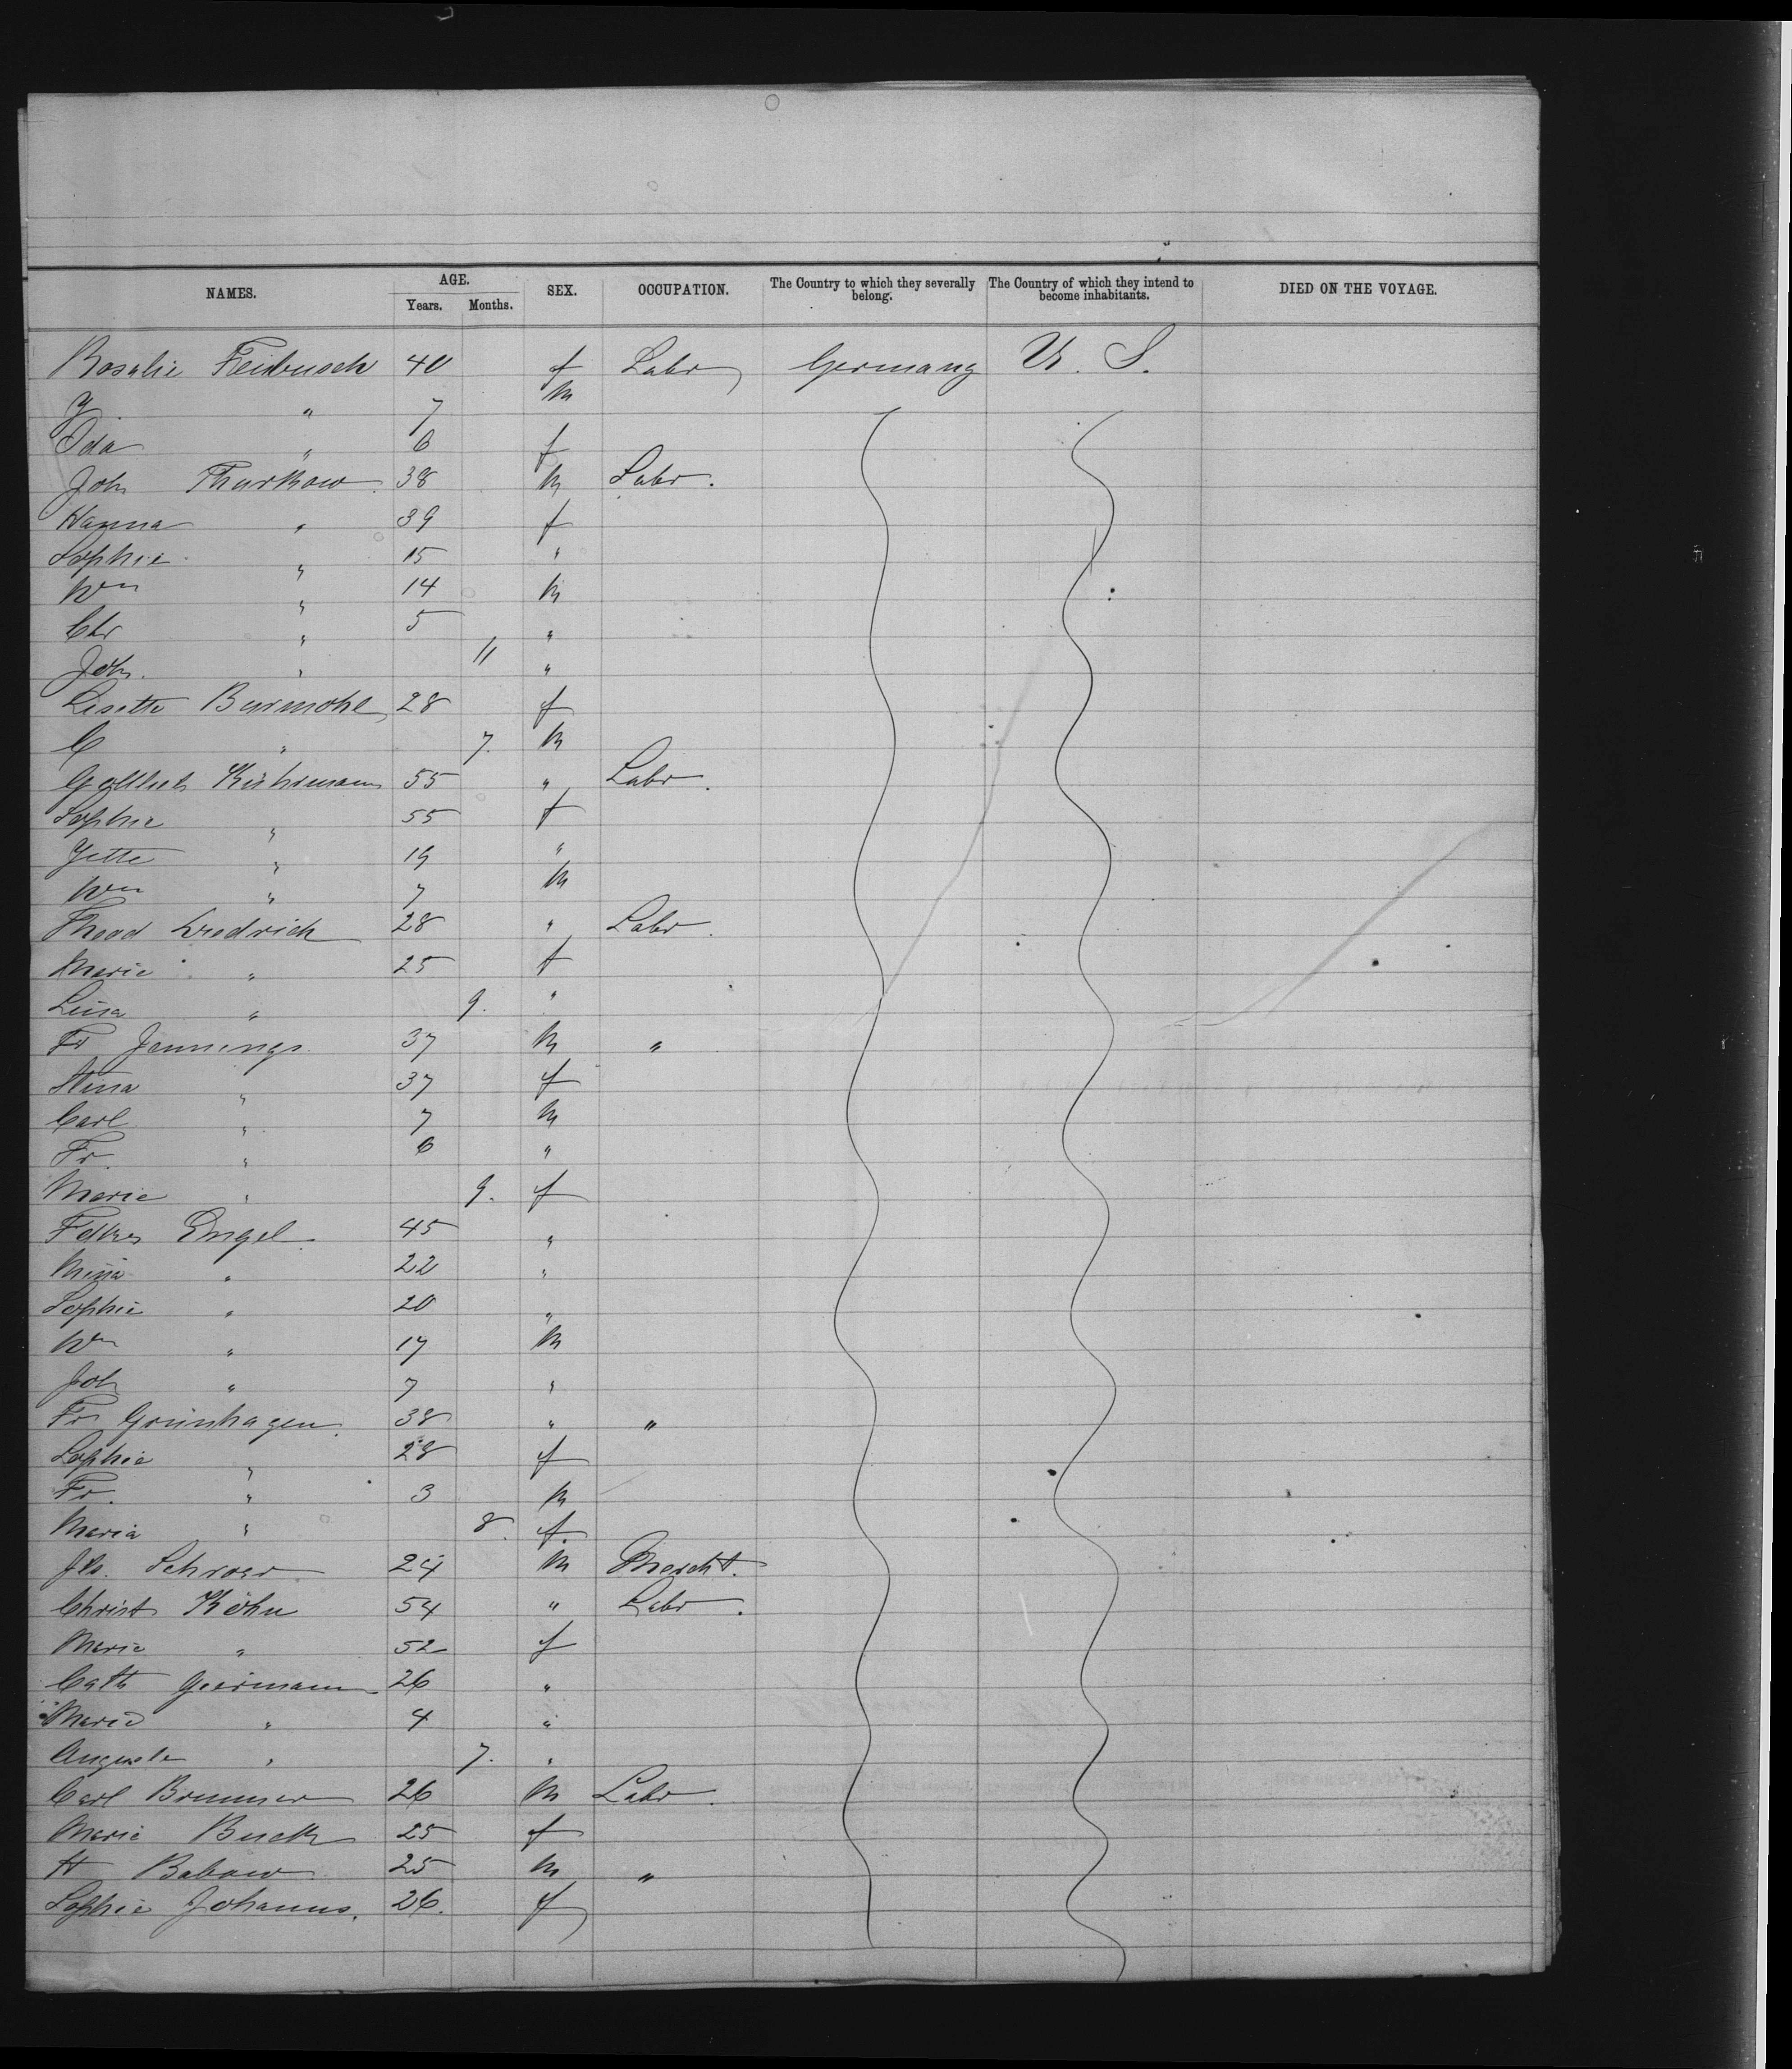 NAMES. AGE. Years. Months. SEX. OCCUPATION. The Country to which they severally belong. The Country of which they intend to become inhabitants. DIED ON THE VOYAGE.
Rosalie Feibusch 40 f Labr Germany U. S.
Y. " 7 m
Ida " 6 f
Joh Thurkow 38 m Labr.
Hanna " 39 f
Sophie " 15 "
Wm " 14 m
Chr " 5 "
Joh. " 11 "
Lisette Burmohl 28 f
C " 7. m
Gottlieb Kuhrmann 55 " Labr.
Sophie " 55 f
Jette " 19 "
Wm " 7 m
Theod Diedrich 28 " Labr.
Marie " 25 f
Lina " 9. "
Fr Jennings 37 m "
Stina " 37 f
Carl " 7 m
Fr. " 6 "
Marie " 9. f
Engel 45 "
Mina " 22 "
Sophie " 20 "
Wm " 17 m
Joh " 7 "
Fr Grünhagen. 38 " "
Sophie " 28 f
Fr. " 3 m
Maria " 8. f.
Schroer 24 m Mercht.
Christ Köhn 54 " Labr.
Marie " 52 f
Cath Geermann 26 "
Marie " 4 "
Auguste " 7. "
Carl Brunner 26 m Labr.
Marie Buck 25 f
H Babow 25 m "
Sophie Johanns. 26. f